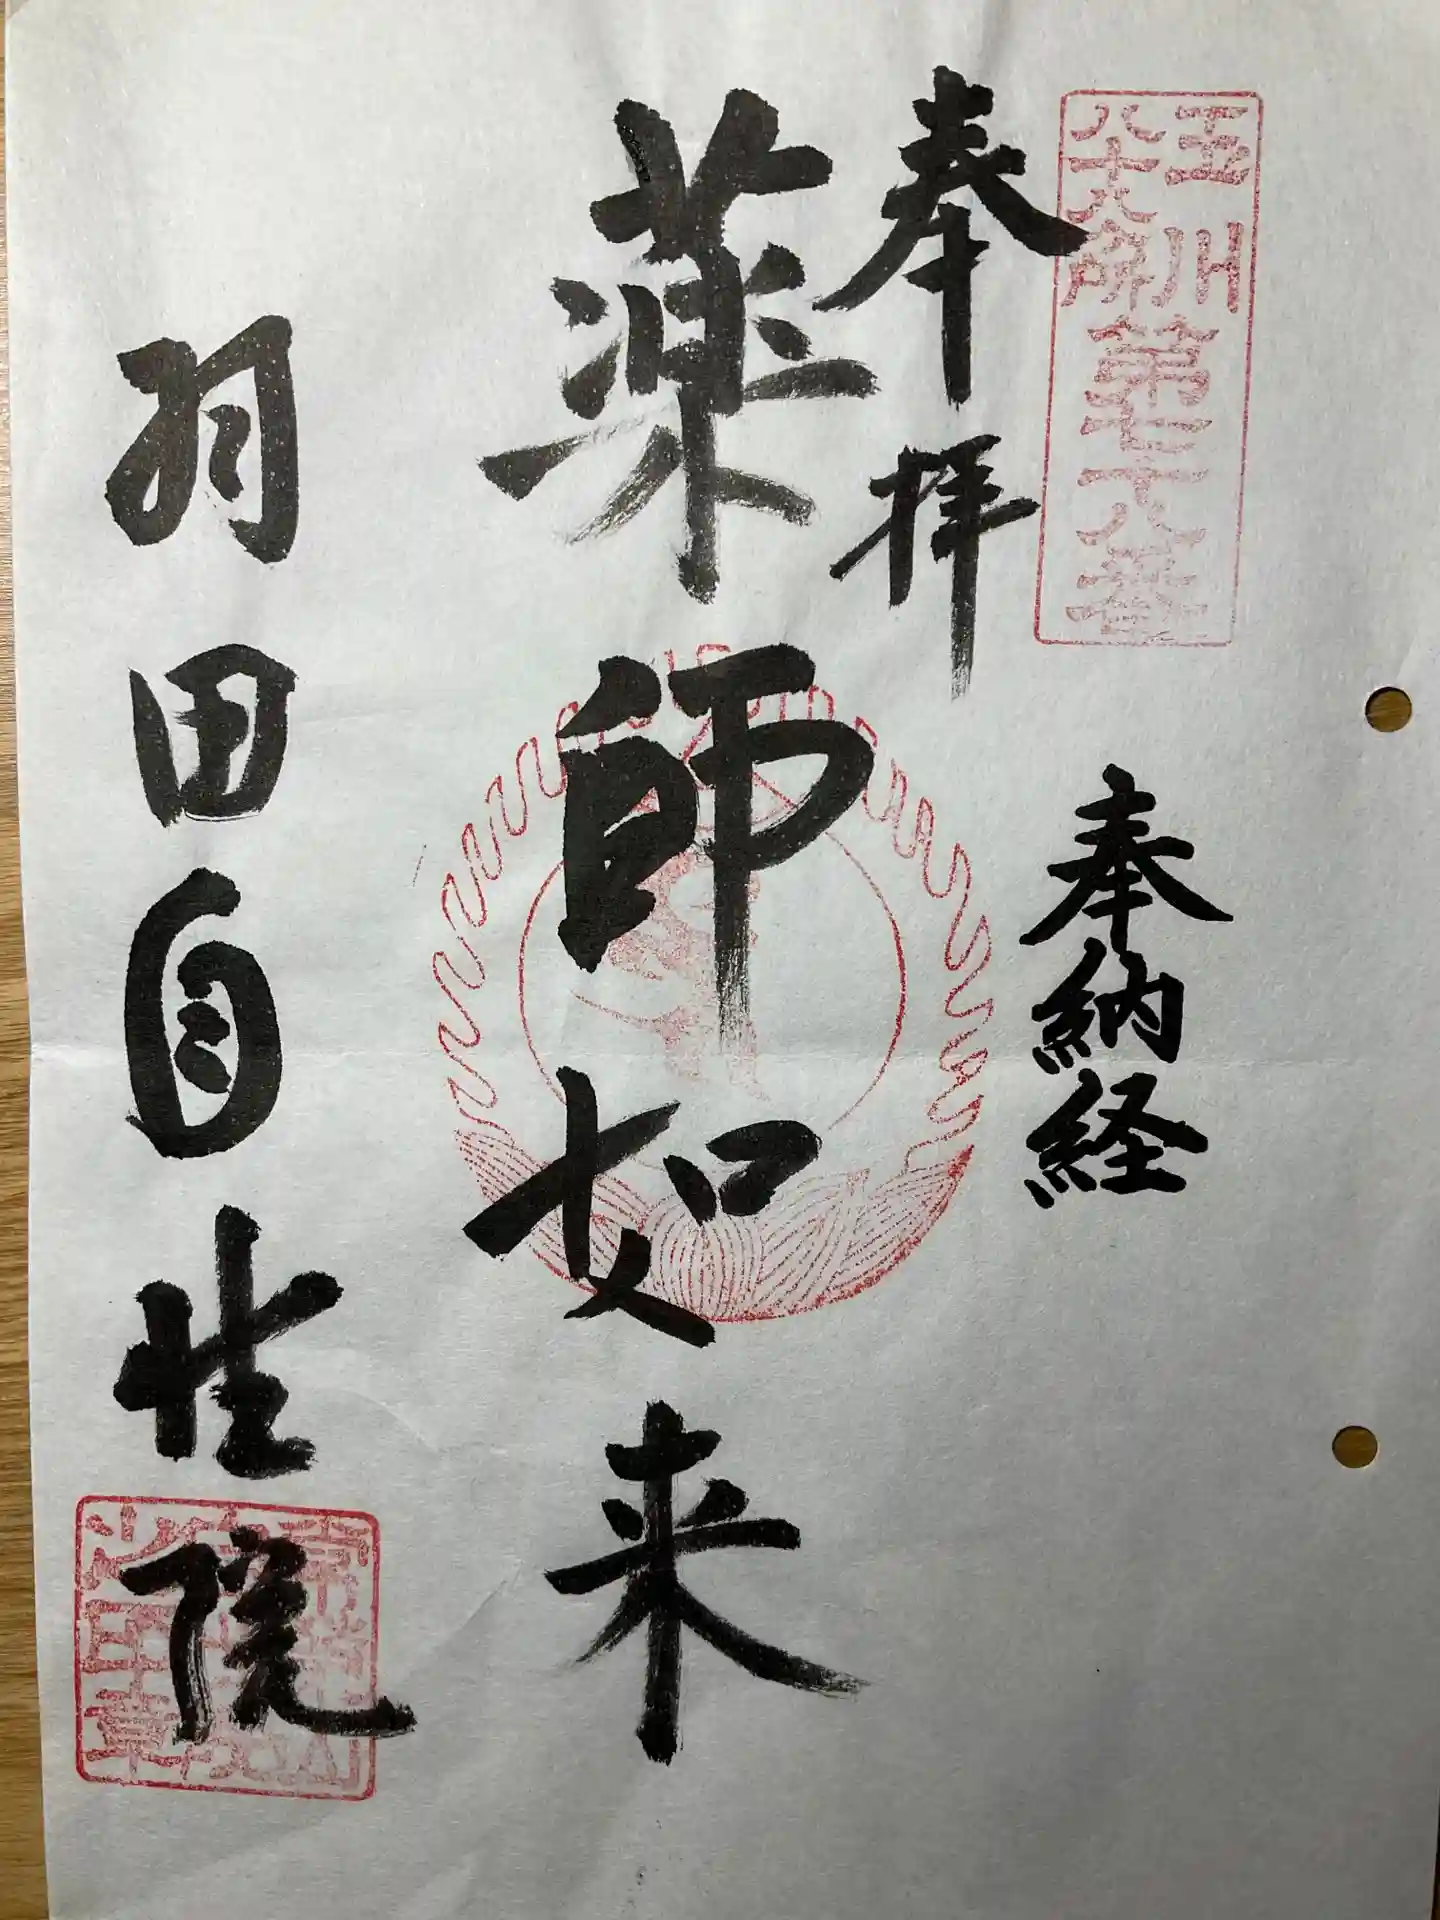 玉川
八十八ヶ所
第七十八番
奉拝
奉納経
薬師如来
羽田自性院